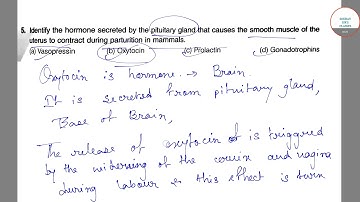 5. Identify the hormone secreted by the pituitary gland that causes the smooth muscle of the
uterus to contract during parturition in mammals.
(a) Vasopressin (b) Oxytocin (c) Prolactin (d) Gonadotrophins
Oxytocin is hormone. → Brain.
It is secreted from pituitary gland,
Base of Brain,
The release of oxytocin is triggered
by the widening of the and vagina
during labour & this effect is turn